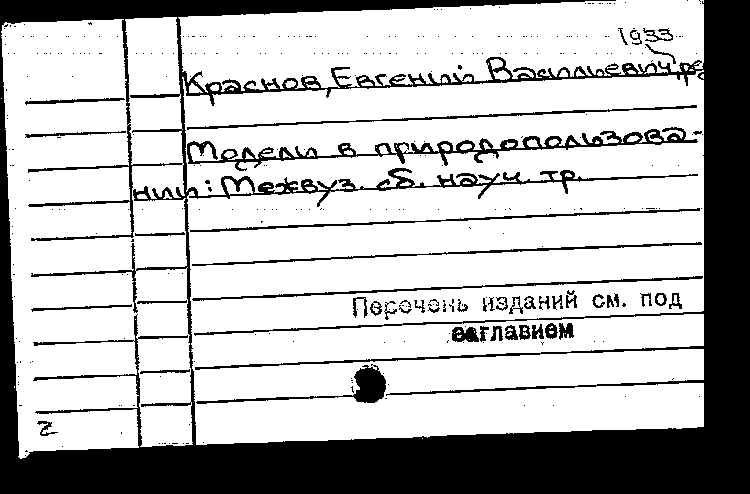 1933
Краснов, Евгений Васильевич, ре
Модели в природопользова-
нии: Межвуз. сб. науч. тр.
Перечень изданий см. под
заглавием
2